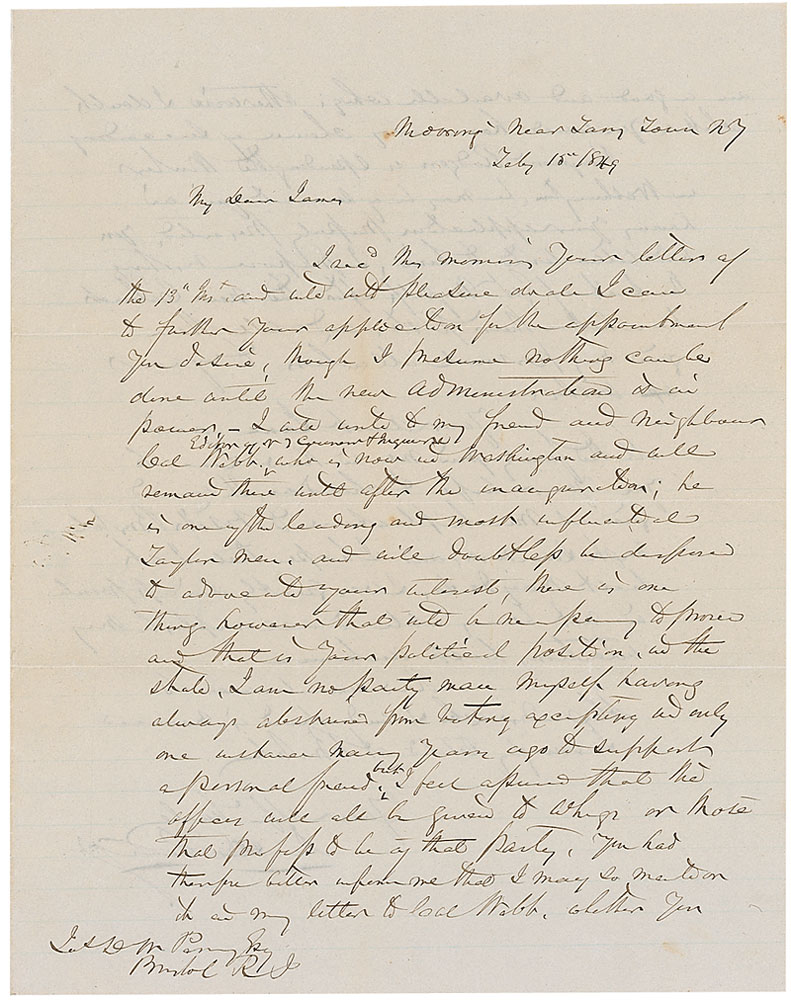 Moorings Near Tarry Town NY
Feby 15th 1849
My Dear James
I recd this morning your letter of
the 13th Inst. and will with pleasure do all I can
to further your application for the appointment
you desire, though I presume nothing can be
done until the new administration is in
power, – I will write to my friend and neighbour
Editor of N Y Courier & Enquirer
Col Webb, who is now in Washington and will
remain there until after the inauguration; he
is one of the leading and most influential
Taylor men, and will doubtless be disposed
to advocate your interest, there is one
thing however that will be necessary to prove
and that is your political position in the
state. I am no party man myself having
always abstained from voting excepting in only
one instance many years ago to support
a personal friend, but I feel assured that the
offices will all be given to Whigs or those
that profess to be of that party. You had
therefore better inform me that I may so mention
it in my letter to Col Webb, whether you
Perry Esq
Bristol R I